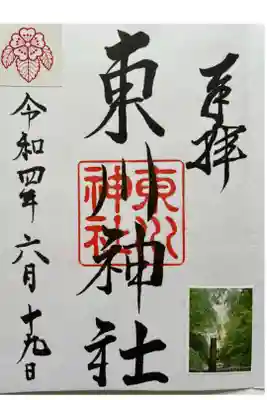 奉拝
東川神社
東川
神社
令和四年 六月 十九日